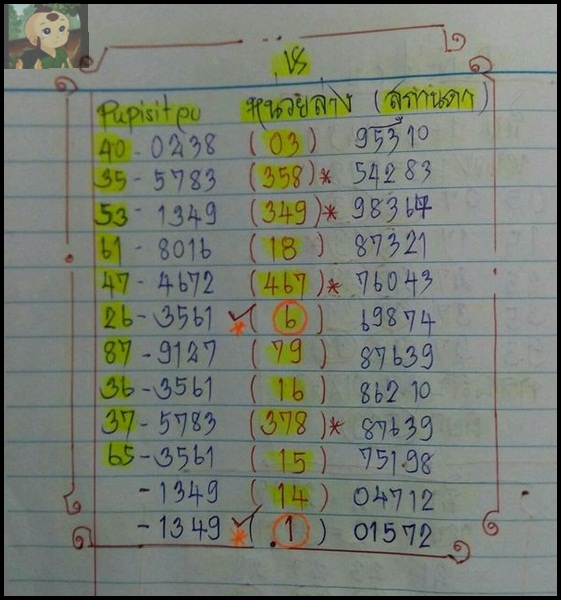 VS
Pupisitคน หน่วยล่าง (สถานดา)
40 - 0238 (03) 95310
35 - 5783 (358)* 54283
53 - 1349 (349)* 98364
61 - 8016 (18) 87321
47 - 4672 (467)* 76043
26 - 3561 ✓* (6) 69874
87 - 9127 (79) 87639
36 - 3561 (16) 86210
37 - 5783 (378)* 87639
65 - 3561 (15) 75198
- 1349 (14) 04712
- 1349 ✓* (1) 01572